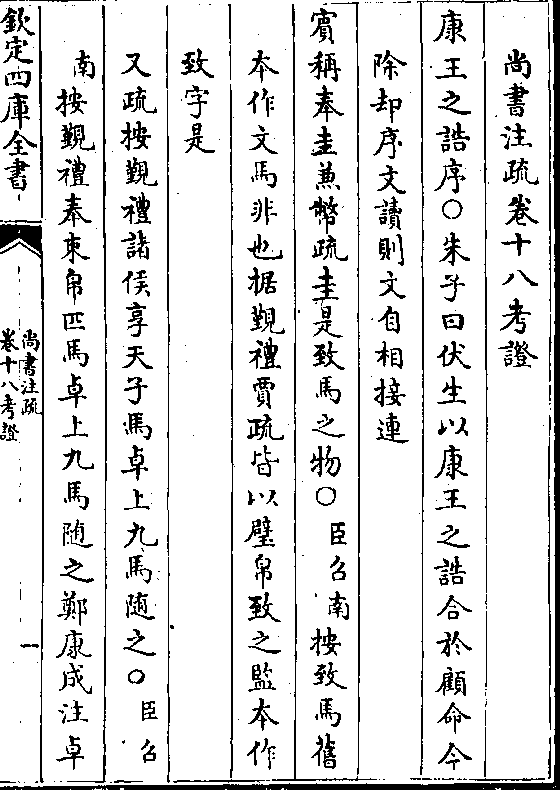 尚書注疏卷十八考證
康王之誥序○朱子曰伏生以康王之誥合於顧命今
除却序文讀則文自相接連
賓稱奉圭兼幣疏圭是致馬之物○臣召南按致馬舊
本作文馬非也据覲禮賈疏皆以璧帛致之監本作
致字是
又疏按覲禮諸侯享天子馬卓上九馬隨之○臣召
南按覲禮奉束帛匹馬卓上九馬随之鄭康成注卓
欽定四庫全書
尚書注疏
卷十八考證
一